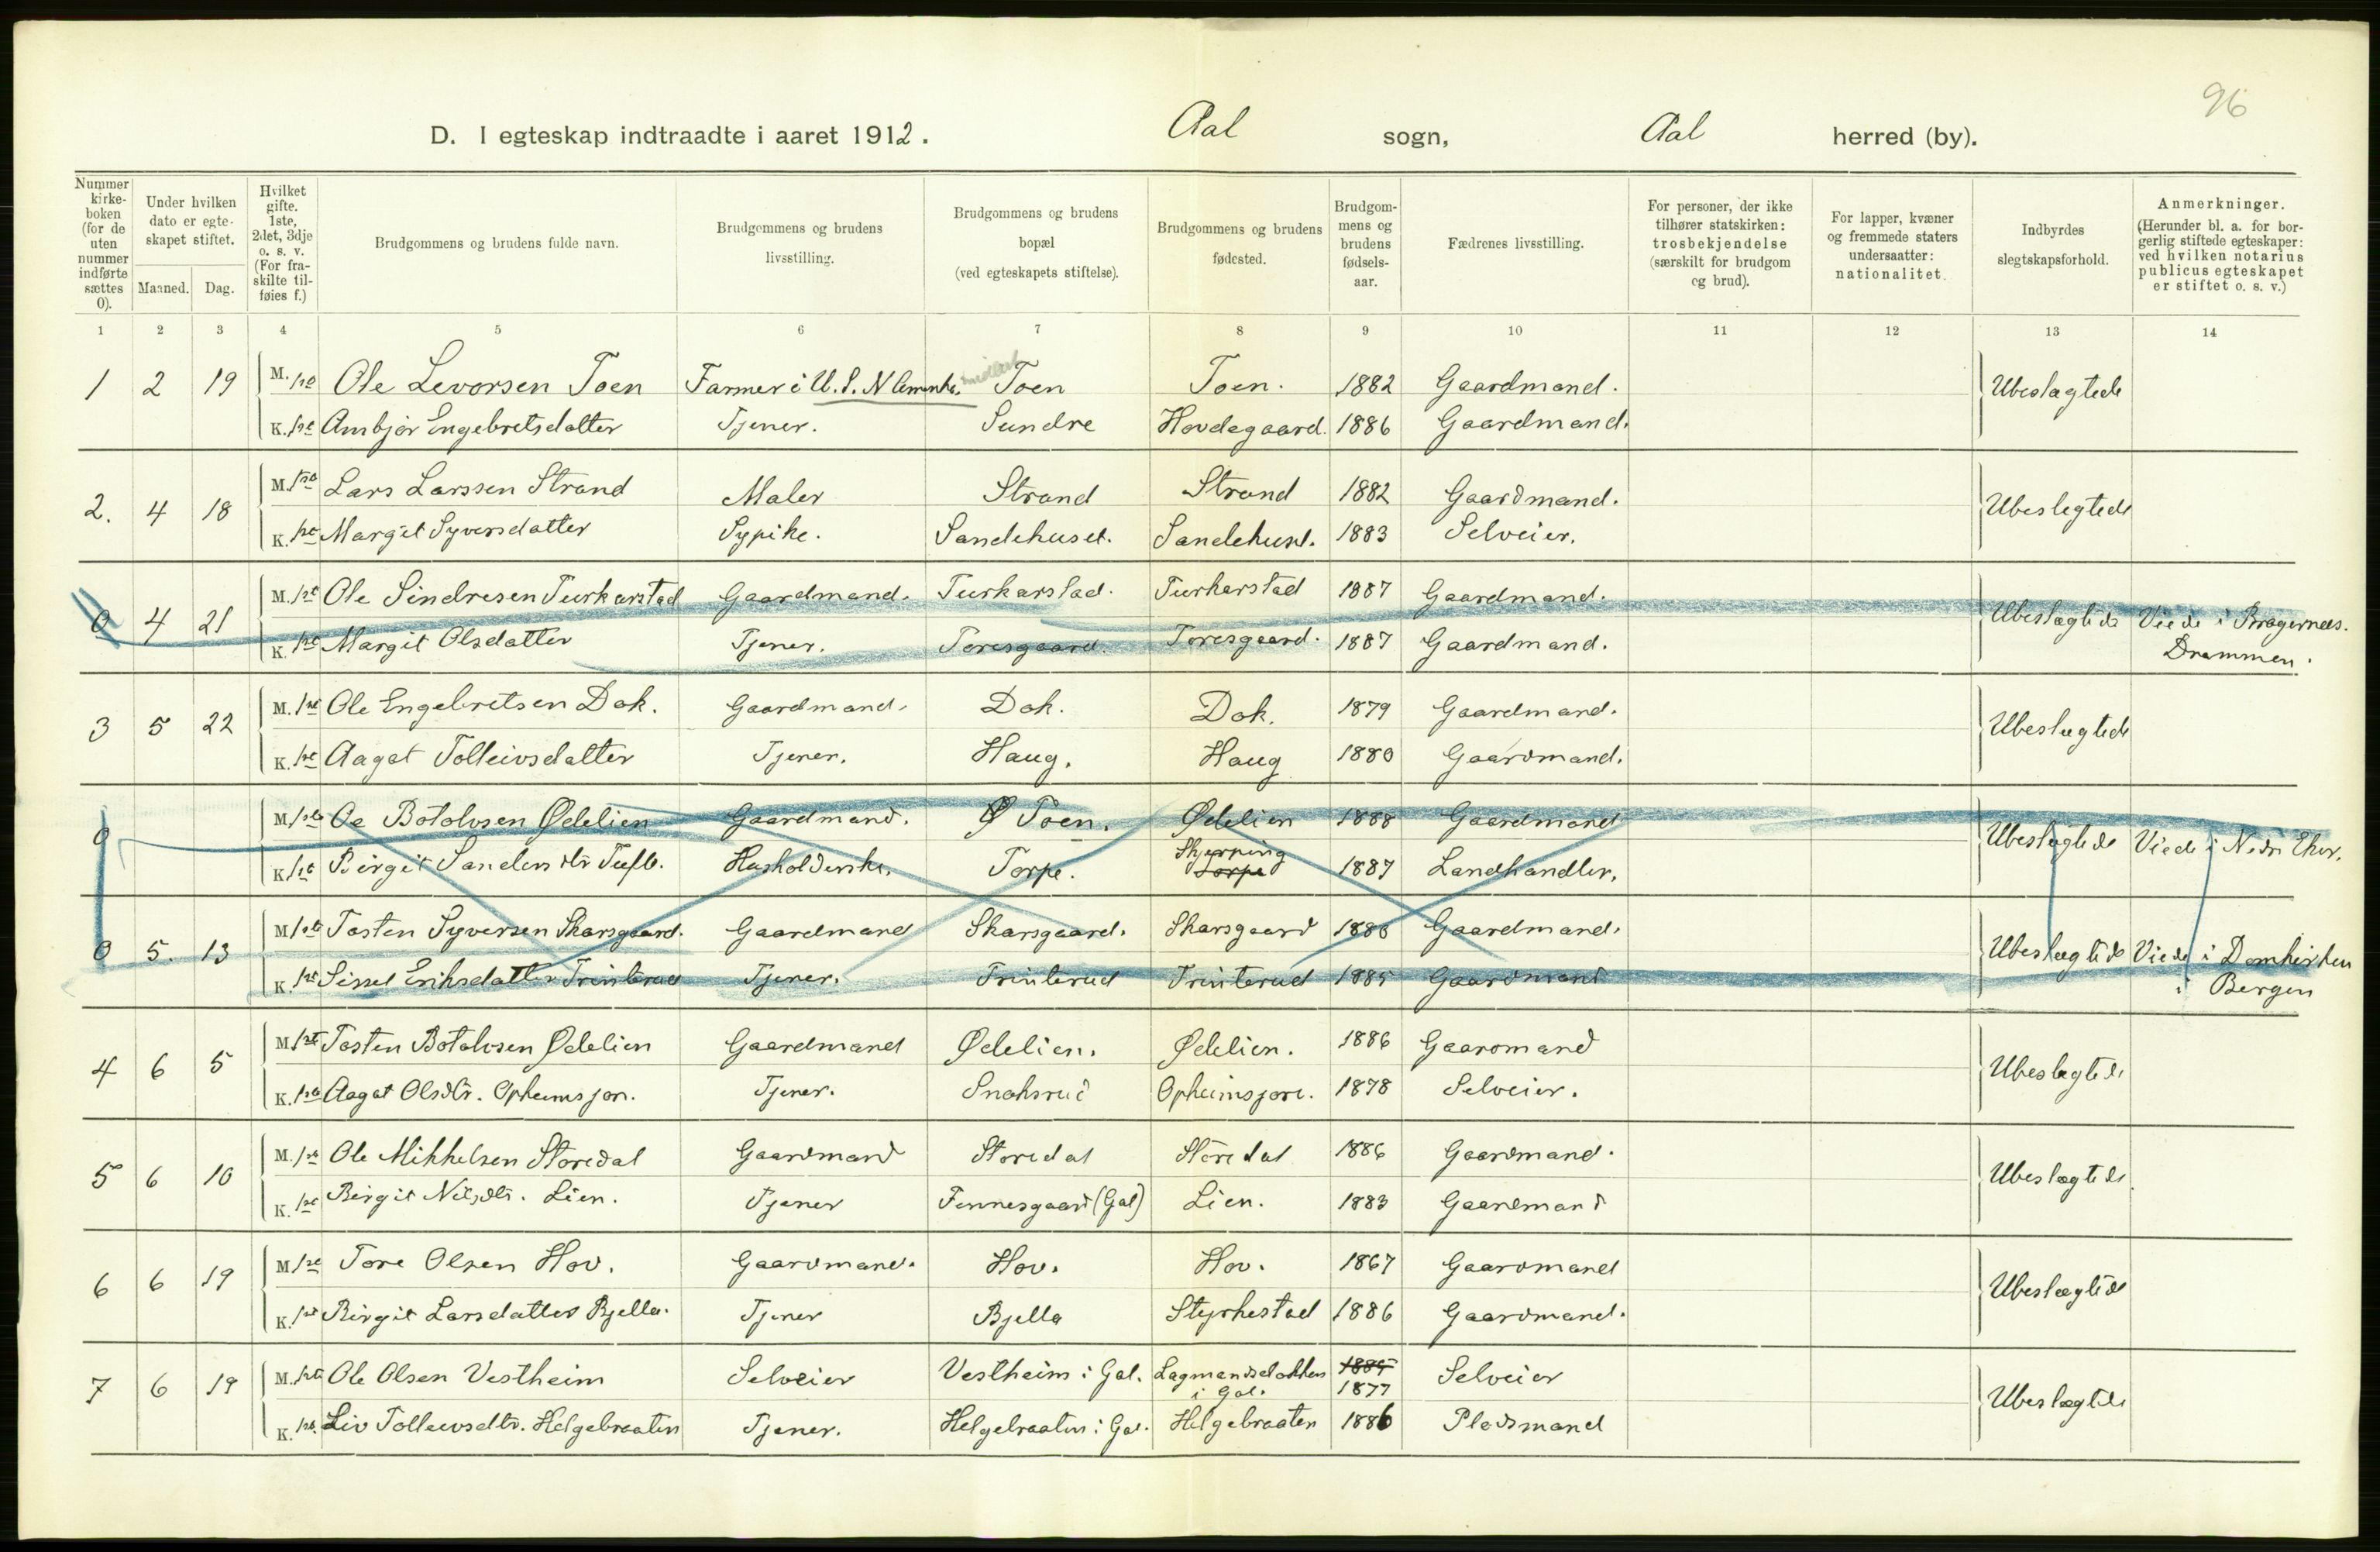 96
D. I egteskap indtraadte i aaret 1912. Aal sogn, Aal herred (by).
Nummer kirkeboken (for de uten nummer indførte sættes 0).
Under hvilken dato er egteskapet stiftet. Maaned. Dag.
Hvilket gifte. 1ste, 2det, 3dje o. s. v. (For fraskilte tilføies f.)
Brudgommens og brudens fulde navn.
Brudgommens og brudens livsstilling.
Brudgommens og brudens bopæl (ved egteskapets stiftelse).
Brudgommens og brudens fødested.
Brudgommens og brudens fødselsaar.
Fædrenes livsstilling.
For personer, der ikke tilhører statskirken: trosbekjendelse (særskilt for brudgom og brud).
For lapper, kvæner og fremmede staters undersaatter: nationalitet.
Indbyrdes slegtskapsforhold.
Anmerkninger. (Herunder bl. a. for borgerlig stiftede egteskaper: ved hvilken notarius publicus egteskapet er stiftet o. s. v.)
1 2 3 4 5 6 7 8 9 10 11 12 13 14
1 2 19 M. 1ste Ole Levorsen Toen Farmer i U.S. N Amerika. Toen Toen. 1882 Gaardmand. Ubeslægtede
K. 1ste Ambjør Engebretsdatter Tjener. Sundre Hovdegaard. 1886 Gaardmand.
2. 4 18 M. 1ste Lars Larssen Strand Maler Strand Strand 1882 Gaardmand. Ubeslegtede
K. 1ste Margit Syversdatter Sypike. Sandehuset. Sandehuset. 1883 Selveier.
0 4 21 M. 1ste Ole Sindresen Turkarstad Gaardmand. Turkarstad. Turkarstad 1887 Gaardmand. Ubeslægtede Viede i Bragernæs.
K. 1ste Margit Olsdatter Tjener. Toresgaard. Toresgaard. 1887 Gaardmand. Drammen.
3 5 22 M. 1ste Ole Engebretsen Dok. Gaardmand. Dok. Dok. 1879 Gaardmand. Ubeslegtede
K. 1ste Aagot Tolleivsdatter Tjener. Haug. Haug 1880 Gaardmand.
0 M. 1ste Oe Botolvsen Ødelien Gaardmand. Toen. Ødelien 1888 Gaardmand Ubeslægtede Viede i Nedr Eker.
K. 1ste Birgit Sanden dtr Tufto. Husholderske. Torpe. Skjerping Torpe 1887 Landhandler.
0 5. 13 M. 1ste Tosten Syversen Skarsgaard. Gaardmand Skarsgaard. Skarsgaard 1886 Gaardmand. Ubeslægtede Viede i Domkirken
K. 1ste Sissel Eriksdatter Trinterud Tjener. Trinterud Trinterud 1885 Gaardmand i Bergen
4 6 5 M. 1ste Tosten Botolvsen Ødelien Gaardmand Ødelien. Ødelien. 1886 Gaardmand Ubeslægtede
K. 1ste Aagot Olsdtr. Opheimsjor. Tjener. Snaksrud Opheimsjore. 1878 Selveier.
5 6 10 M. 1ste Ole Mikkelsen Storedal Gaardmand Storedal Storedal 1886 Gaardmand. Ubeslægtede
K. 1ste Birgit Nilsdtr. Lien. Tjener Finnesgaard (Gol) Lien. 1883 Gaardmand
6 6 19 M. 1ste Tore Olsen Hov. Gaardmand. Hov. Hov. 1867 Gaardmand Ubeslægtede
K. 1ste Birgit Larsdatter Bjella. Tjener Bjella Styrkestad 1886 Gaardmand.
7 6 19 M. 1ste Ole Olsen Vestheim Selveier Vestheim i Gol. Lagmandsdokken i Gol. 1885 1877 Selveier Ubeslægtede
K. 1ste Liv Tolleivsdtr. Helgebraaten Tjener. Helgebraaten i Gol. Helgebraaten 1886 Pladsmand